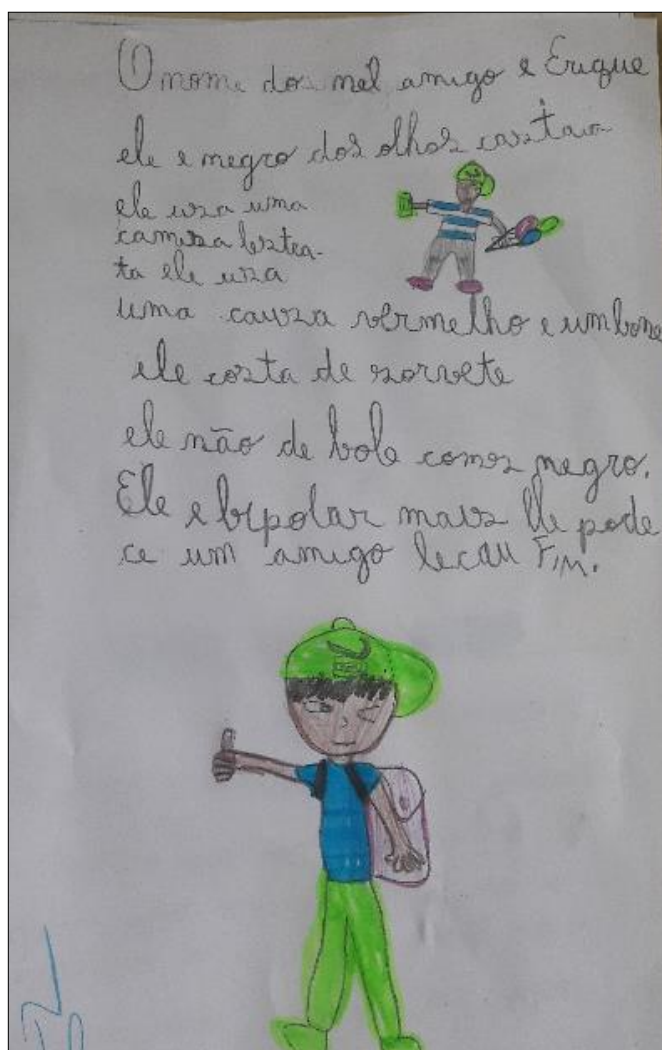 O nome dos mel amigo e Erique
ele e negro dos olhos castaio
ele usa uma
camisa lestra-
ta ele usa
uma causa vermelho e um bone
ele costa de sorvete
ele não de bola comos negro.
Ele e bipolar mais ele pode
ce um amigo lecau FIM.